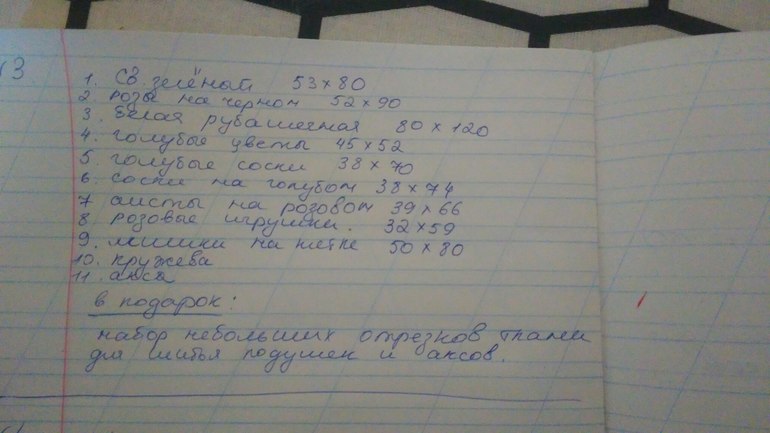 №3
1. св. зелёный 53×80
2. розы на черном 52×90
3. белая рубашечная 80×120
4. голубые цветы 45×52
5. голубые соски 38×70
6. соски на голубом 38×74
7. аисты на розовом 39×66
8. розовые игрушки. 32×59
9. мишки на нитке 50×80
10. кружева
11. акса
в подарок:
набор небольших отрезков ткани
для шитья подушек и аксов.